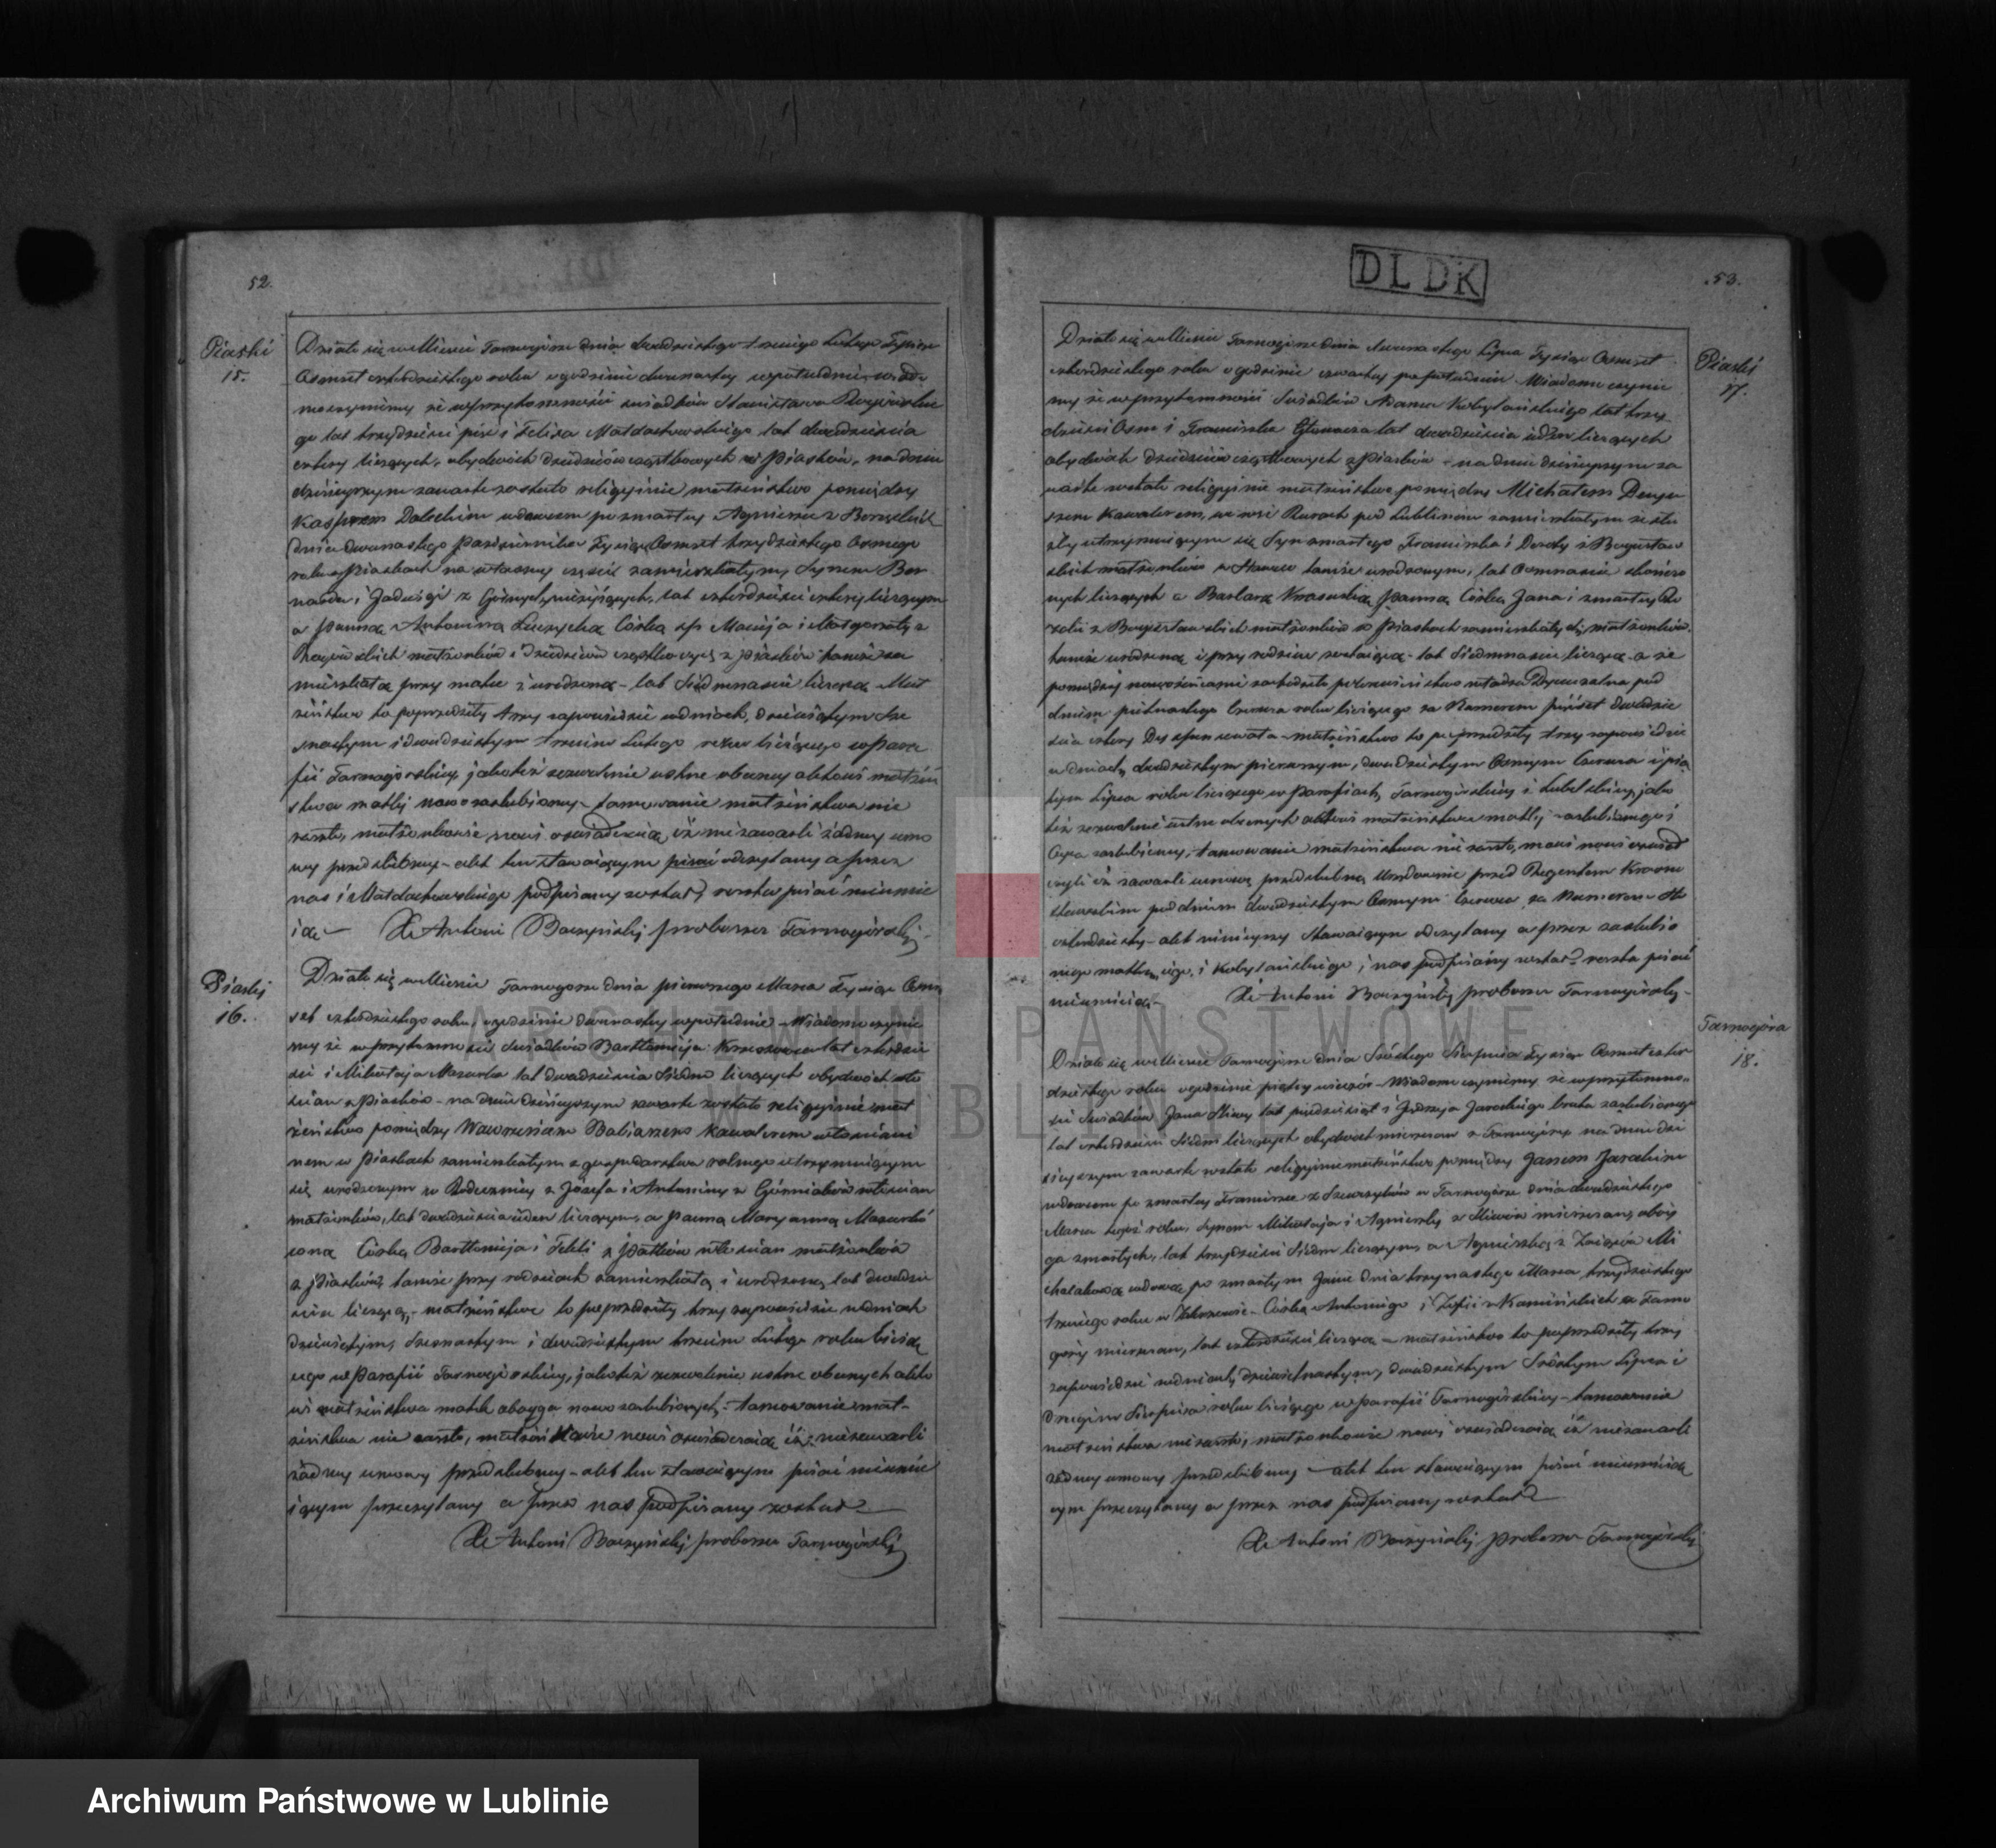 52.
Piaski
15.
Działo się w Mieście Tarnogórze dnia dwudziestego trzeciego Lutego Tysiąc
Osmset czterdziestego roku o godzinie dwunastey w południe wiado
mo czynimy że w przytomności świadków Stanisława
go lat trzydzieści pięć i Felixa Małdachowskiego lat dwadzieścia
cztery liczących, obydwóch dziedziców cząstkowych w Piaskach, na dniu
dzisieyszym zawarte zostało religijnie małżeństwo pomiędzy
Kasprem wdowcem po zmarłey Agnieszce z
dnia dwunastego Października Tysiąc Osmset trzydziestego Osmego
roku w Piaskach na własney części zamieszkałym, Synem Ber
narda i Jadwigi z lat czterdzieści cztery liczącym
a Panną Antoniną Córką Macieja i Małgorzaty z
małżonków i dziedziców cząstkowych z Piasków tamże za
mieszkałą przy matce i urodzoną – lat Siedmnaście liczącą Mał
żeństwo to poprzedziły trzy zapowiedzie w dniach, dziewiątym Sze
snastym i dwudziestym trzecim Lutego roku bieżącego w Para
fii Tarnogórskiey, jakoteż zezwolenie ustne obecney aktowi małżeń
stwa matki nowo zaślubioney – tamowanie małżeństwa nie
zaszło, małżonkowie nowi oświadczają, iż nie zawarli żadney umo
wy przedślubney – akt ten stawaiącym pisać odczytany a przez
nas i Małdachowskiego podpisany został, reszta pisać nieumie
ią – X. Antoni Boczyński proboszcz Tarnogórski
Piaski
16.
Działo się w Mieście Tarnogórze dnia pierwszego Marca Tysiąc Osm
set czterdziestego roku, o godzinie dwunastey w południe – Wiadomo czynie
my że w przytomności Świadków Bartłomieja lat czterdzie
ści i Mikołaja Mazurka lat dwadzieścia Siedm liczących obydwóch wło
ścian z Piasków – na dniu dzisieyszym zawarte zostało religijnie mał
żeństwo pomiędzy Wawrzeńcem Babiarzem Kawalerem włościani
nem w Piaskach zamieszkałym z gospodarstwa rolnego utrzymuiącym
się urodzonym w z Józefa i Antoniny z włościan
małżonków, lat dwadzieścia ieden liczącym, a Panną Maryanną Mazurkó
wną Córką Bartłomieja i Tekli z włościan małżonków
z Piasków, tamże przy rodzicach zamieszkałą i urodzoną, lat dwadzie
ścia liczącą, – małżeństwo to poprzedziły trzy zapowiedzie w dniach
dziewiątym, Szesnastym i dwudziestym trzecim Lutego roku bieżą
cego w Parafii Tarnogórskiey, jakoteż zezwolenie ustne obecnych akto
wi małżeństwa matek oboyga nowo zaślubionych – tamowanie mał-
żeństwa nie zaszło, małżonkowie nowi oświadczają iż niezawarli
żadney umowy przedślubney – akt ten stawaiącym pisać nieumie
iącym przeczytany a przez nas podpisany został –
X. Antoni Boczyński proboszcz Tarnogórski
DLDK
53.
Piaski
17.
Działo się w Mieście Tarnogórze dnia dwunastego Lipca Tysiąc Osmset
czterdziestego roku o godzinie czwartey po południu – Wiadomo czynie
my że w przytomności Świadków Adama Kobylańskiego lat trzy
dzieści Osm i Franciszka lat dwadzieścia siedm liczących
obydwóch dziedziców cząstkowych z Piasków – na dniu dzisieyszym za
warte zostało religijnie małżeństwo pomiędzy Michałem
Kawalerem, we wsi Rurach pod Lublinem zamieszkałym ze słu
żby utrzymuiącym się Synem zmarłego Franciszka i Doroty z Bogusław
skich małżonków tamże urodzonym, lat Osmnaście skończo
nych liczącym a Barbarą Krasucką Panną Córką Jana i zmarłey Ro
zalii z Bogusławskich małżonków w Piaskach zamieszkałych małżonków
tamże urodzoną i przy rodzicu zostaiącą – lat Siedmnaście liczącą – a że
pomiędzy nowożeńcami zachodziło pokrewieństwo władza Dyecezalna pod
dniem piętnastego Czerwca roku bieżącego za Numerem pięćset dwadzie
ścia cztery – małżeństwo to poprzedziły trzy zapowiedzie
w dniach, dwudziestym pierwszym, dwudziestym Osmym Czerwca i pią
tym Lipca roku bieżącego w Parafiach, Tarnogórskiey i Lubelskiey, jako
też zezwolenie ustne obecnych aktowi małżeństwa matki zaślubionego i
Oyca zaślubioney, tamowanie małżeństwa nie zaszło, małżonkowie nowi oświad
czyli iż zawarli umowę przedślubną Urzędownie przed Regentem Krasno
stawskim pod dniem dwudziestym Osmym Czerwca za Numerem Sto
czterdzieści – akt ninieyszy stawaiącym odczytany a przez zaślubio
nego i Kobylańskiego i nas podpisany został reszta pisać
nieumieią – X. Antoni Boczyński proboszcz Tarnogórski –
Tarnogóra
18.
Działo się w Mieście Tarnogórze dnia Szóstego Sierpnia Tysiąc Osmset czter
dziestego roku o godzinie piątey wieczór – Wiadomo czynimy że w przytomno-
ści Świadków Jana Śliwy lat pięćdziesiąt i Jędrzeja Jarockiego brata zaślubionego
lat czterdzieści Siedm liczących obydwóch mieszczan z Tarnogóry na dniu dzi
sieyszym zawarte zostało religijnie małżeństwo pomiędzy Janem Jarockim
wdowcem po zmarłey Franciszce z w Tarnogórze dnia dwudziestego
Marca tegoż roku, Synem Mikołaja i Agnieszki z Śliwów mieszczan, oboy
ga zmarłych, lat trzydzieści Siedm liczącym, a Agnieszką z Mi
chalakową wdową po zmarłym Janie dnia trzynastego Marca, trzydziestego
trzeciego roku w – Córką Antoniego i Zofii z Kamińskich w Tarno
górze mieszczan, lat czterdzieści liczącą – małżeństwo to poprzedziły trzy
zapowiedzie w dniach, dziewiętnastym, dwudziestym Szóstym Lipca i
drugim Sierpnia roku bieżącego w parafii Tarnogórskiey – tamowanie
małżeństwa nie zaszło, małżonkowie nowi oświadczają iż niezawarli
żadney umowy przedślubney – akt ten stawaiącym pisać nieumieią
cym przeczytany a przez nas podpisany został
X. Antoni Boczyński proboszcz Tarnogórski
ARCHIWUM PAŃSTWOWE
W LUBLINIE
Archiwum Państwowe w Lublinie